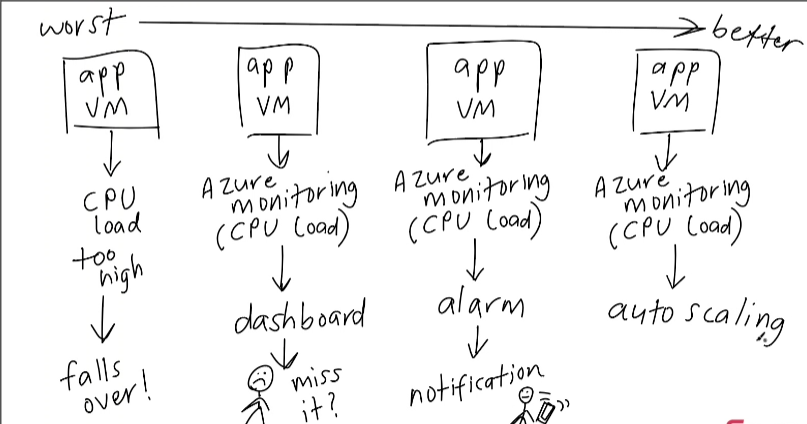 worst → better
app
VM
CPU
load
too
high
falls
over!
app
VM
Azure
monitoring
(CPU load)
dashboard
miss
it?
app
VM
Azure
monitoring
(CPU load)
alarm
notification
app
VM
Azure
monitoring
(CPU load)
auto scaling